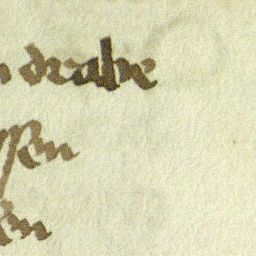 n drabe
ssen
en